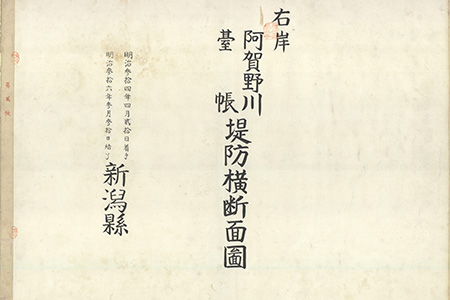 右岸
阿賀野川
臺帳
堤防横断面圖
明治参拾四年四月貳拾日着手
明治参拾六年参月参拾日結了
新潟縣